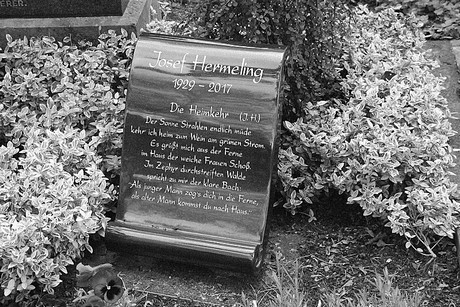 Josef Hermeling
1929 – 2017
Die Heimkehr (J.H)
Der Sonne Strahlen endlich müde
kehr ich heim zum Wein am grünen Strom.
Es grüßt mich aus der Ferne
im Haus der weiche Frauen Schoß.
Im Zephyr durchstreiften Walde
spricht zu mir der klare Bach:
"Als junger Mann zog's dich in die Ferne,
als alter Mann kommst du nach Haus."